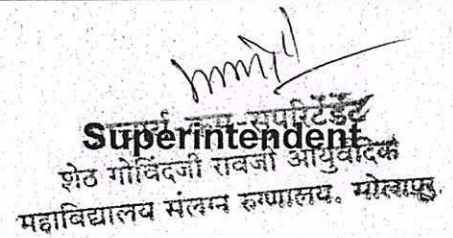 Superintendent
शेठ गोविंदजी रावजी आयुर्वेदिक
महाविद्यालय संलग्न रुग्णालय. सोलापूर.